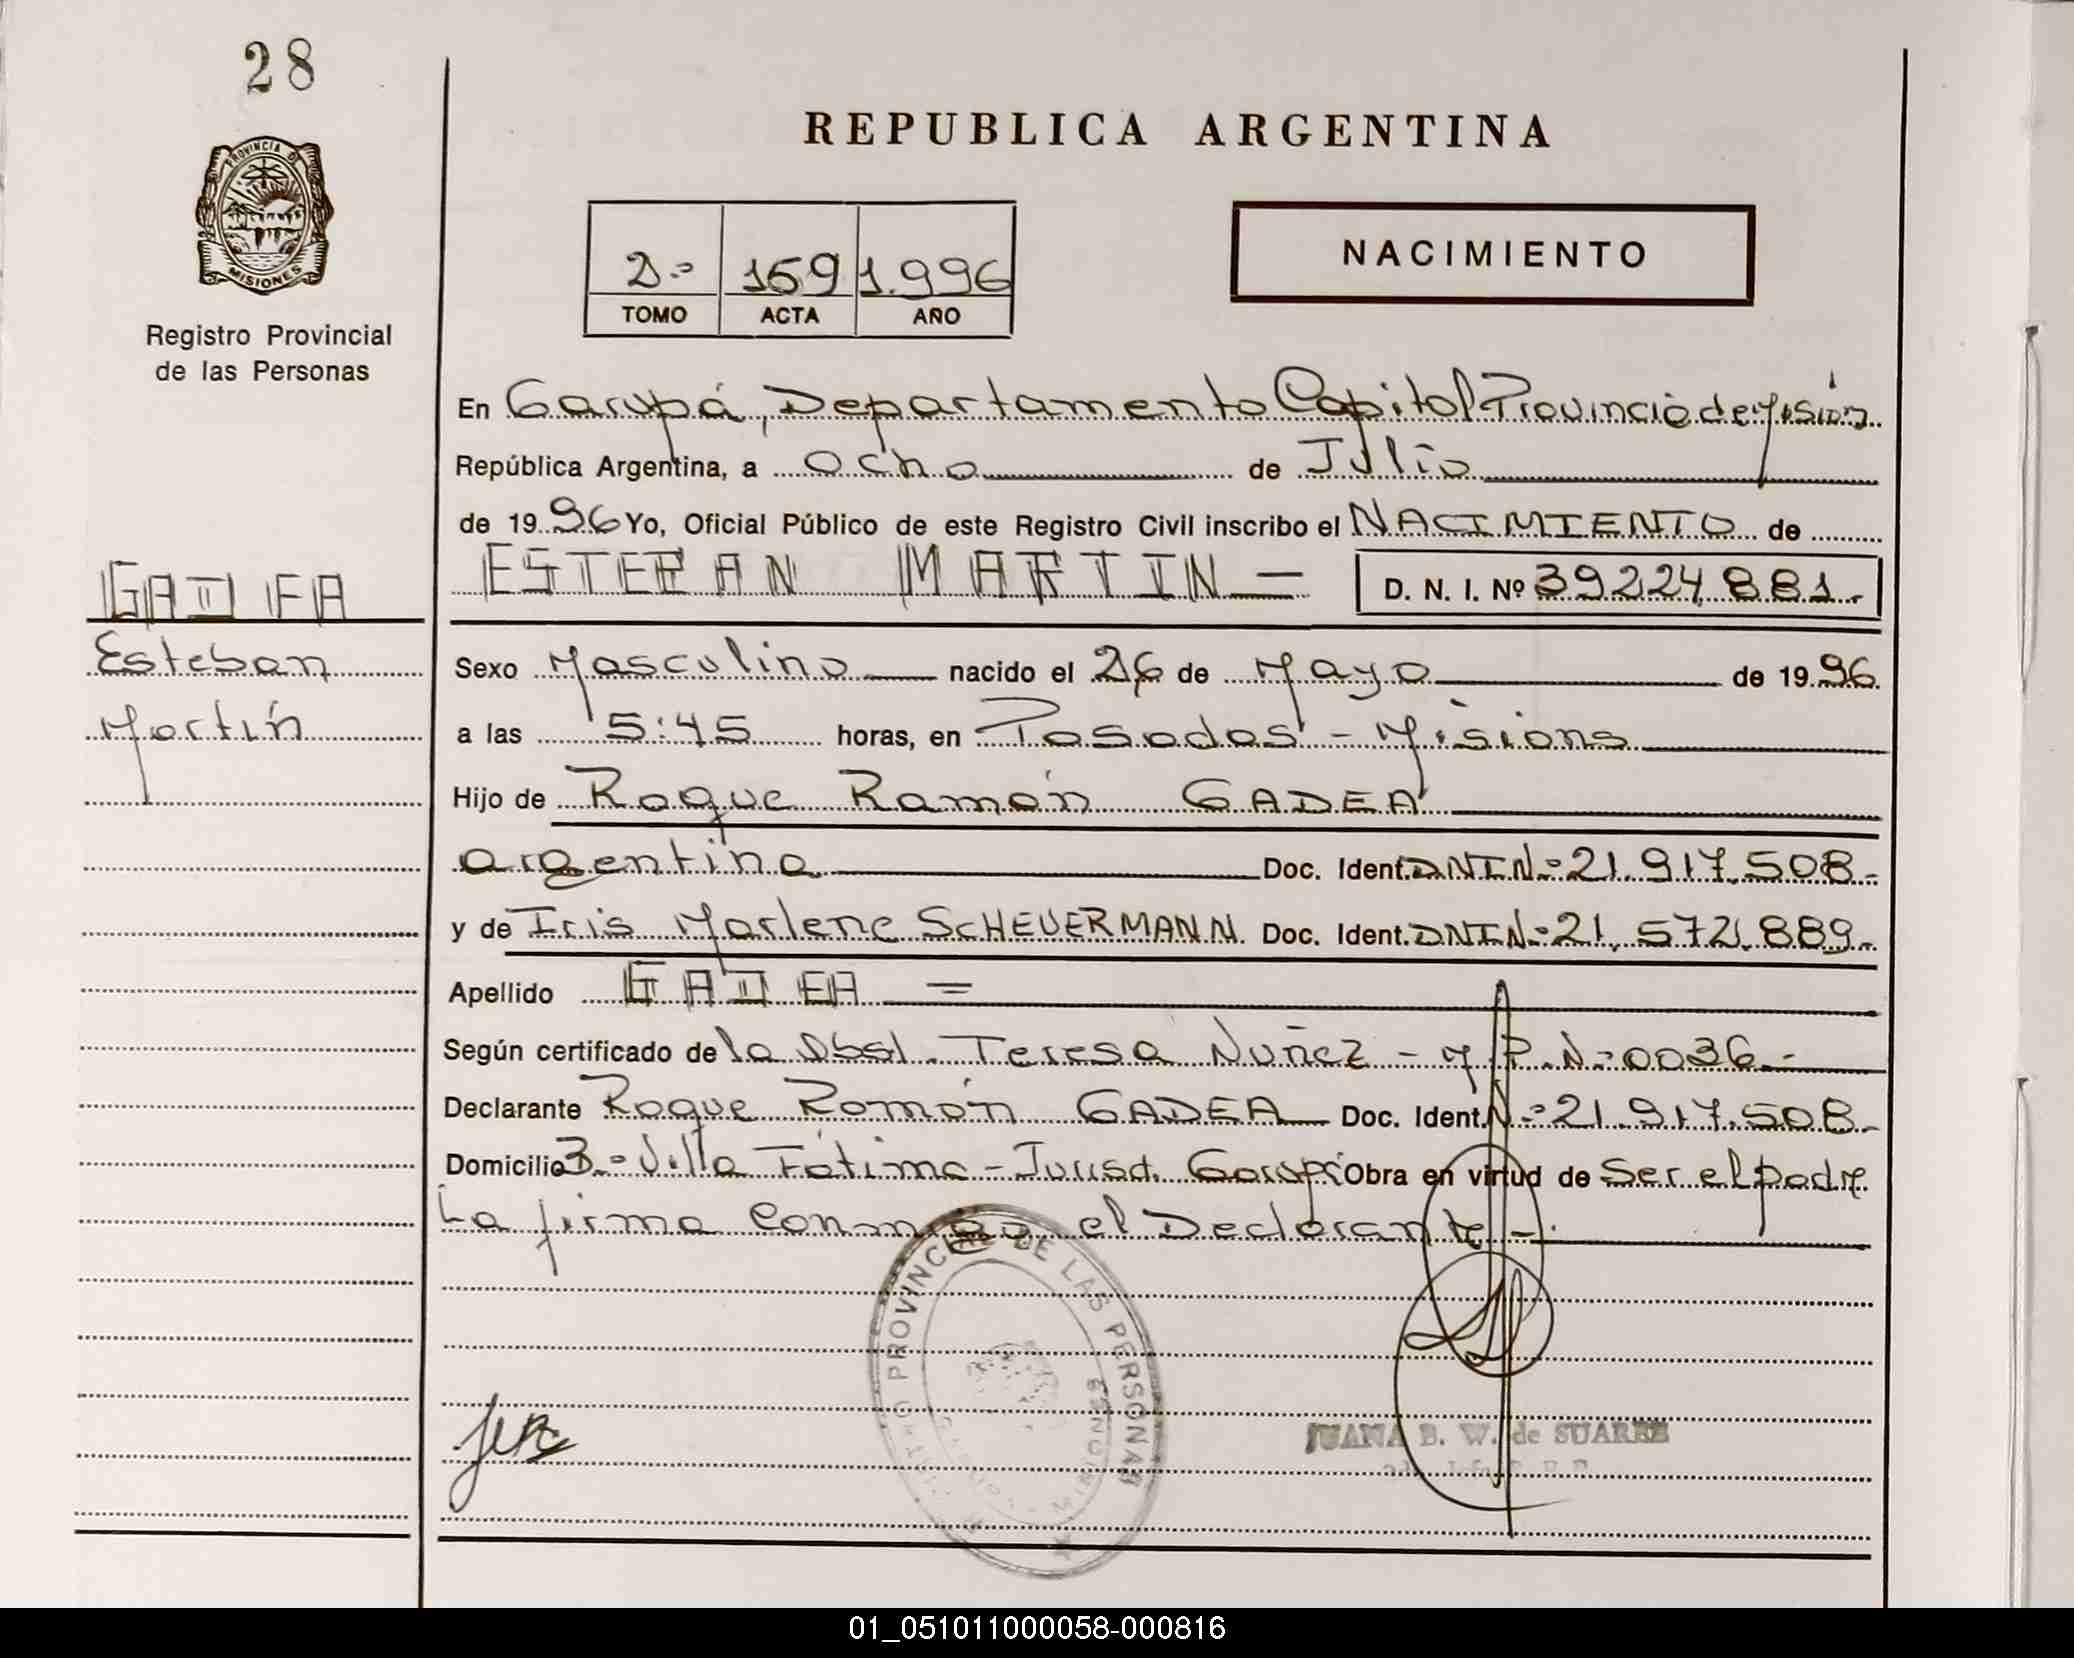 28
REPUBLICA ARGENTINA
PROVINCIA DE
MISIONES
Registro Provincial
de las Personas
2.º 169 1.996
TOMO ACTA AÑO
NACIMIENTO
En Garupá, Departamento Capital Provincia de Mision
República Argentina, a Ocho de Julio
de 1996 Yo, Oficial Público de este Registro Civil inscribo el NACIMIENTO de
ESTEBAN MARTIN - D. N. I. Nº 39.224.881.-
GADEA
Esteban
Martín
Sexo Masculino nacido el 26 de Mayo de 1996
a las 5:45 horas, en Posadas - Misions
Hijo de Roque Ramón GADEA
argentino Doc. Ident. DNI Nº 21.917.508-
y de Iris Marlene SCHEUERMANN. Doc. Ident. DNI Nº 21.572.889-
Apellido GADEA =
Según certificado de la Obst. Teresa Nuñez - M.P.Nº 0036.-
Declarante Roque Ramón GADEA Doc. Ident. Nº 21.917.508-
Domicilio Bº Villa Fátima - Jurisd. Garupá Obra en virtud de Ser el padre
La firma conmigo el Declarante -.
PROVINCIAL DE LAS PERSONAS
MISIONES
JUANA B. W. de SUAREZ
01_051011000058-000816